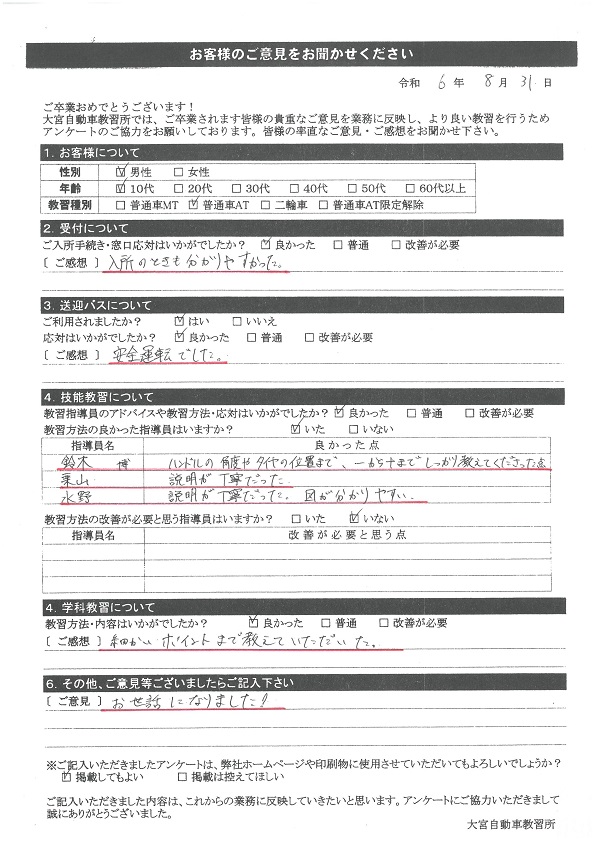 お客様のご意見をお聞かせください
令和 6 年 8 月 31 日
ご卒業おめでとうございます！
大宮自動車教習所では、ご卒業されます皆様の貴重なご意見を業務に反映し、より良い教習を行うため
アンケートのご協力をお願いしております。皆様の率直なご意見・ご感想をお聞かせ下さい。
1. お客様について
性別 ☑男性 □女性
年齢 ☑10代 □20代 □30代 □40代 □50代 □60代以上
教習種別 □普通車MT ☑普通車AT □二輪車 □普通車AT限定解除
2. 受付について
ご入所手続き・窓口応対はいかがでしたか？ ☑良かった □普通 □改善が必要
［ ご感想 ］ 入所のときも分かりやすかった。
3. 送迎バスについて
ご利用されましたか？ ☑はい □いいえ
応対はいかがでしたか？ ☑良かった □普通 □改善が必要
［ ご感想 ］ 安全運転でした。
4. 技能教習について
教習指導員のアドバイスや教習方法・応対はいかがでしたか？ ☑良かった □普通 □改善が必要
教習方法の良かった指導員はいますか？ ☑いた □いない
指導員名 良かった点
鈴木 博 ハンドルの角度やタイヤの位置まで、一から十までしっかり教えてくださった点
栗山 説明が丁寧だった
水野 説明が丁寧だった。図が分かりやすい。
教習方法の改善が必要と思う指導員はいますか？ □いた ☑いない
指導員名 改善が必要と思う点
4. 学科教習について
教習方法・内容はいかがでしたか？ ☑良かった □普通 □改善が必要
［ ご感想 ］ 細かいポイントまで教えていただいた。
6. その他、ご意見等ございましたらご記入下さい
［ ご意見 ］ お世話になりました！
※ご記入いただきましたアンケートは、弊社ホームページや印刷物に使用させていただいてもよろしいでしょうか？
☑掲載してもよい □掲載は控えてほしい
ご記入いただきました内容は、これからの業務に反映していきたいと思います。アンケートにご協力いただきまして
誠にありがとうございました。
大宮自動車教習所